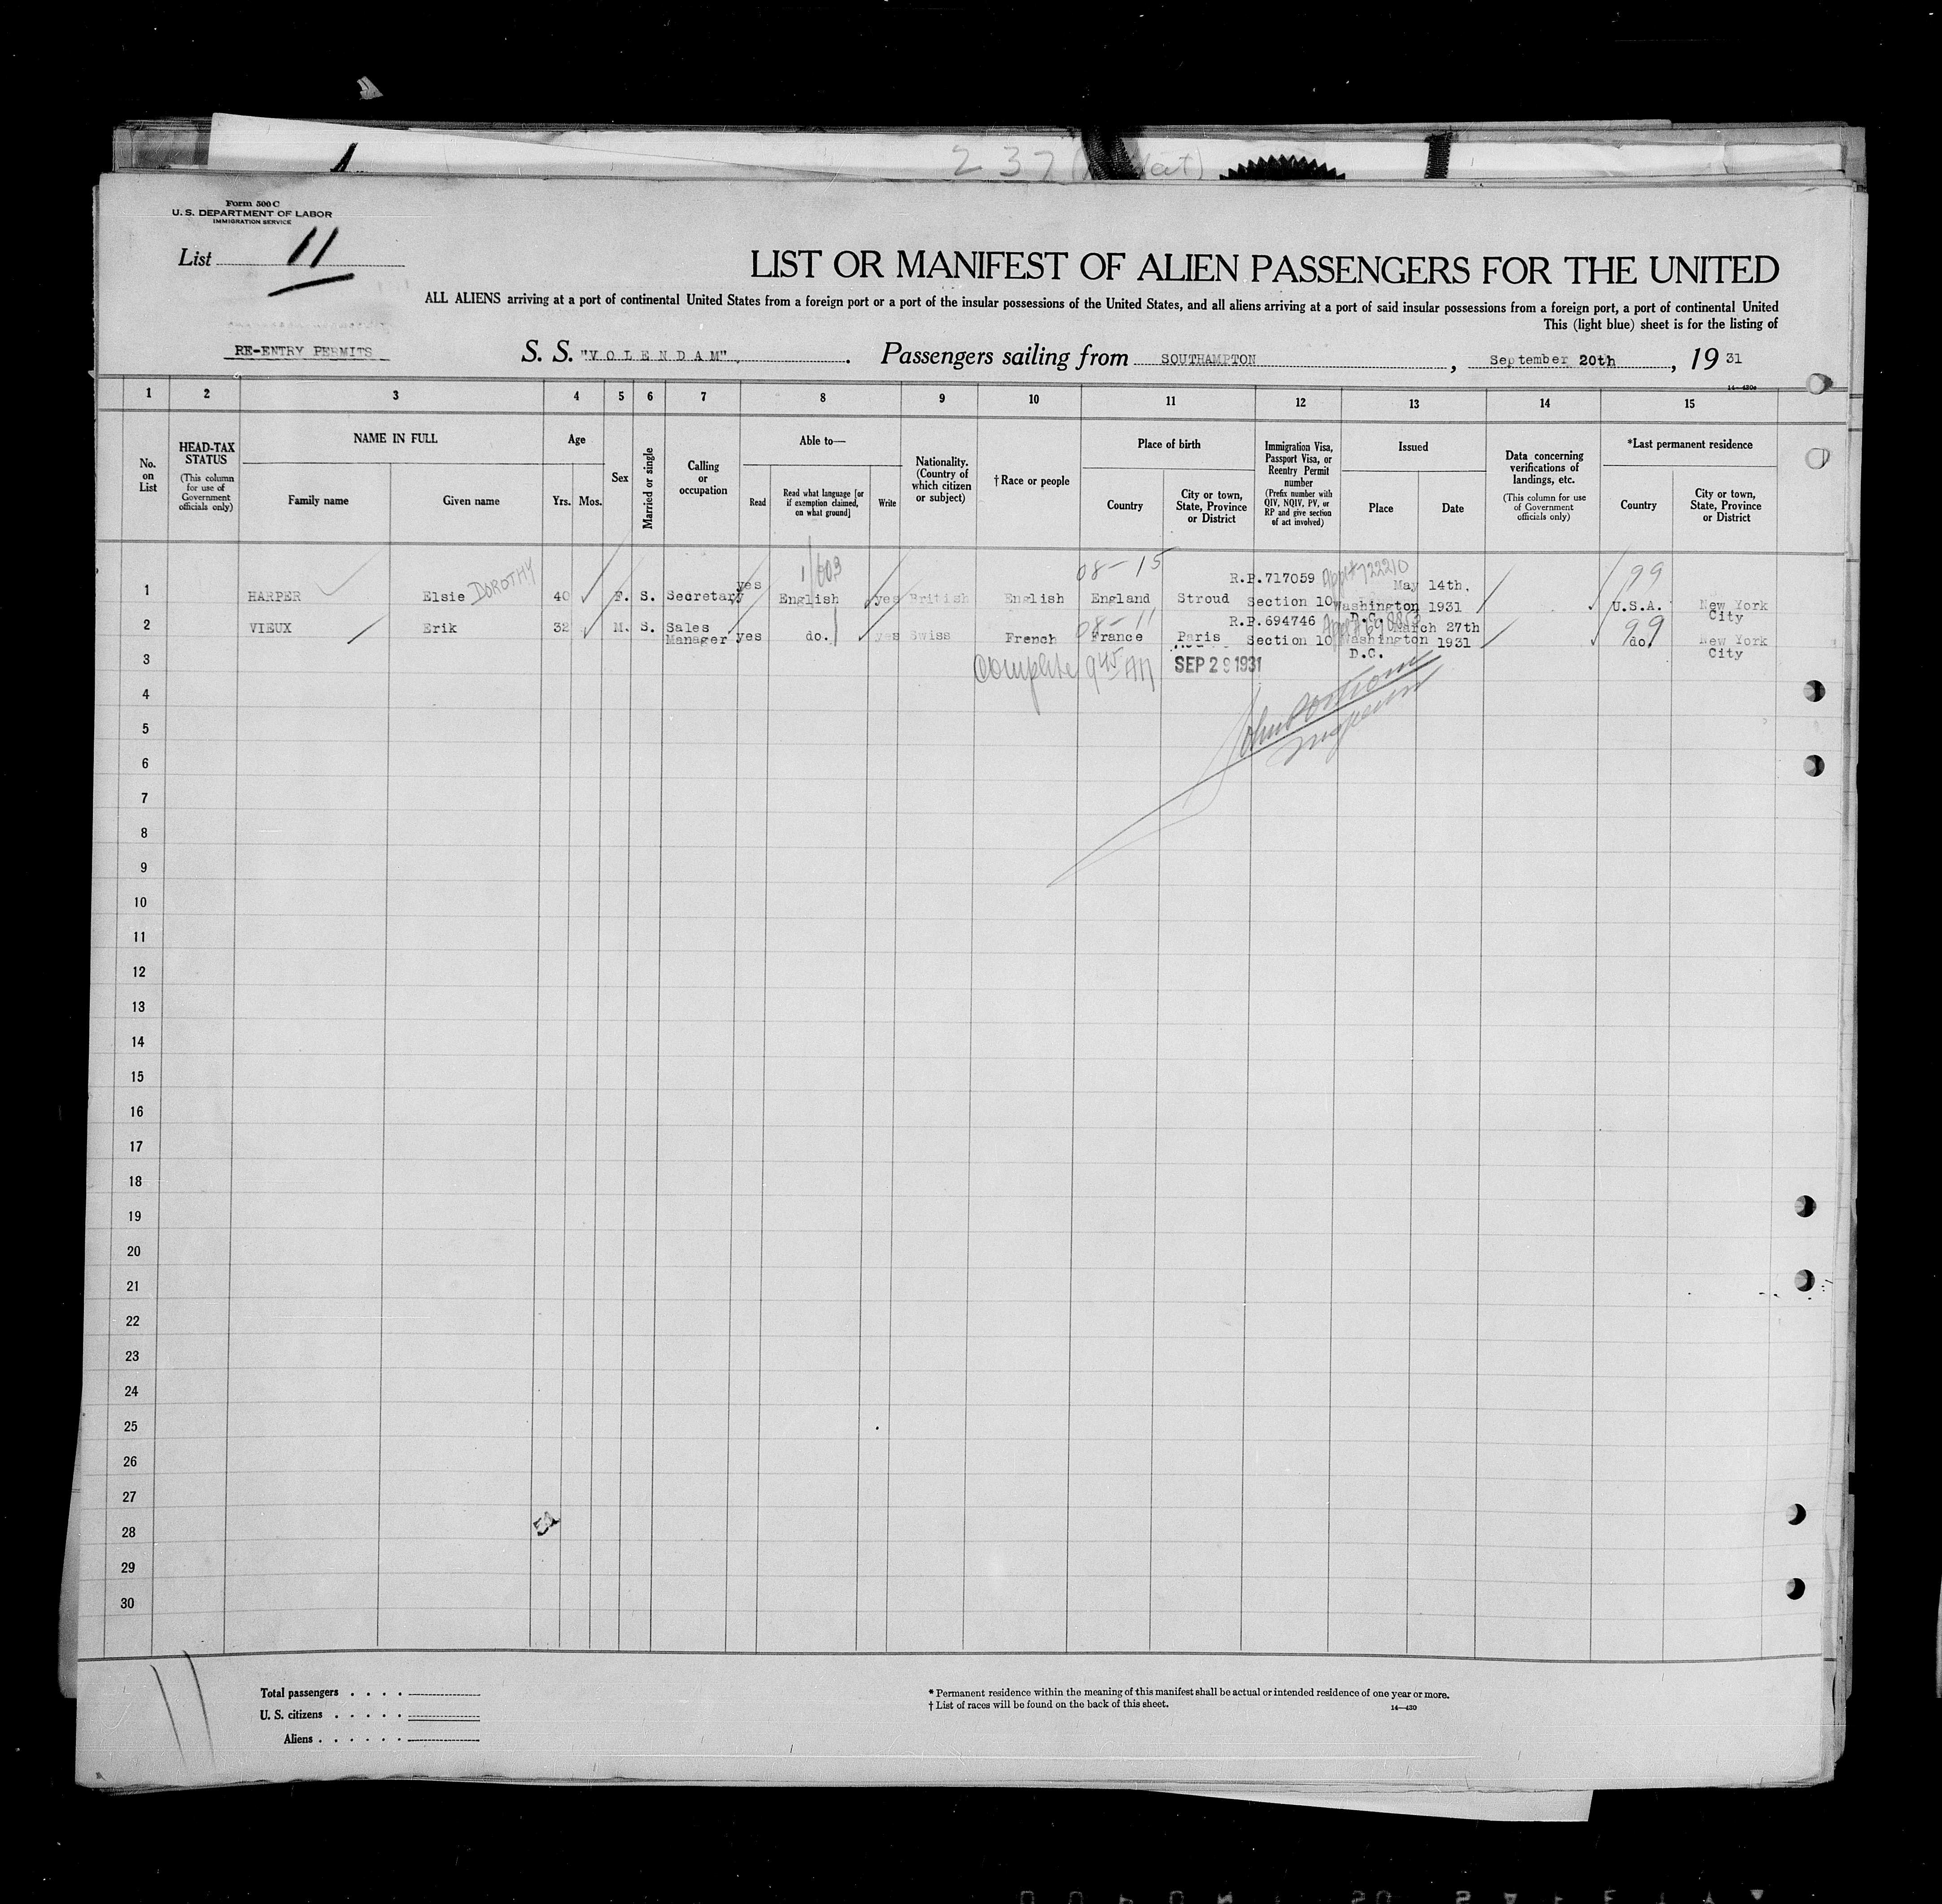 237
Form 500 C
U. S. DEPARTMENT OF LABOR
IMMIGRATION SERVICE
List 11
LIST OR MANIFEST OF ALIEN PASSENGERS FOR THE UNITED
ALL ALIENS arriving at a port of continental United States from a foreign port or a port of the insular possessions of the United States, and all aliens arriving at a port of said insular possessions from a foreign port, a port of continental United
This (light blue) sheet is for the listing of
RE-ENTRY PERMITS
S. S. "VOLENDAM" . Passengers sailing from SOUTHAMPTON , September 20th , 19 31
14—430a
1 2 3 4 5 6 7 8 9 10 11 12 13 14 15
No. on List
HEAD-TAX STATUS
(This column for use of Government officials only)
NAME IN FULL
Family name
Given name
Age
Yrs.
Mos.
Sex
Married or single
Calling or occupation
Able to—
Read
Read what language [or if exemption claimed, on what ground]
Write
Nationality. (Country of which citizen or subject)
†Race or people
Place of birth
Country
City or town, State, Province or District
Immigration Visa, Passport Visa, or Reentry Permit number
(Prefix number with QIV, NQIV, PV, or RP and give section of act involved)
Issued
Place
Date
Data concerning verifications of landings, etc.
(This column for use of Government officials only)
*Last permanent residence
Country
City or town, State, Province or District
1 HARPER Elsie DOROTHY 40 F. S. Secretary yes English yes British English England Stroud R.P.717059 Section 10 Washington D.C. May 14th, 1931 U.S.A. New York City
08-15
99
2 VIEUX Erik 32 M. S. Sales Manager yes do. yes Swiss French France Paris R.P.694746 Section 10 Washington D.C. March 27th 1931 do. New York City
08-11
99
3 Complete 9 45 AM SEP 29 1931
4
5
6
7
8
9
10
11
12
13
14
15
16
17
18
19
20
21
22
23
24
25
26
27
28
29
30
Total passengers . . . .
U. S. citizens . . . . .
Aliens . . . . . .
* Permanent residence within the meaning of this manifest shall be actual or intended residence of one year or more.
† List of races will be found on the back of this sheet.
14—430